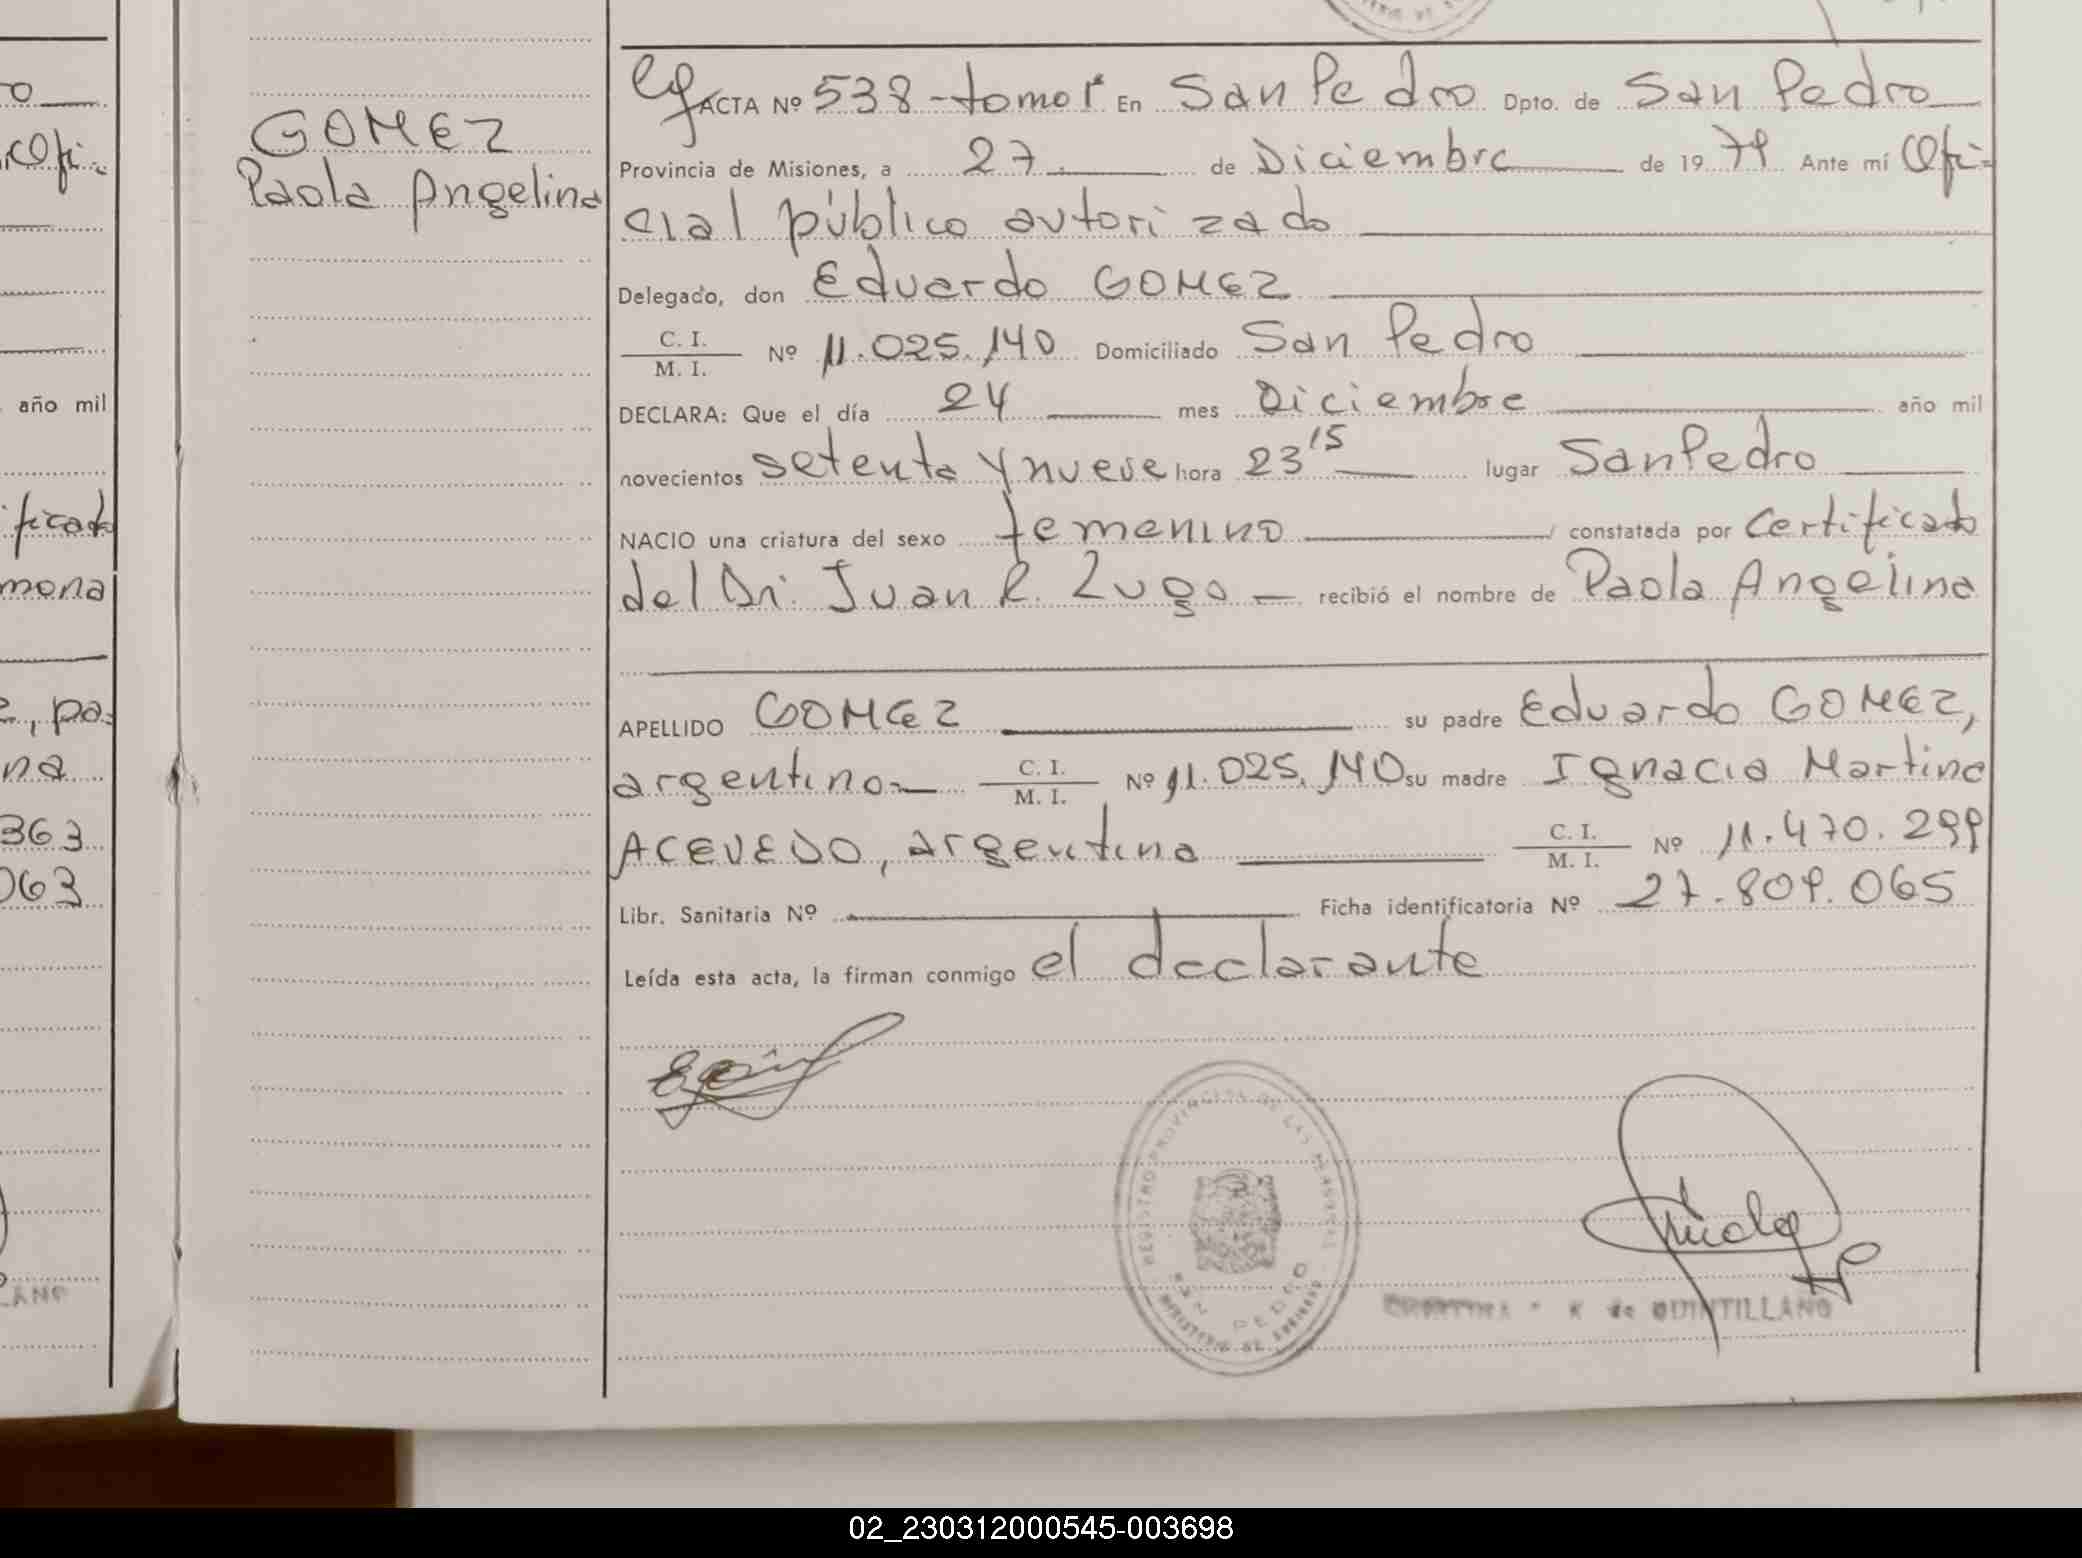 GOMEZ
Paola Angelina
ACTA Nº 538-tomo I En San Pedro Dpto. de San Pedro
Provincia de Misiones, a 27 de Diciembre de 1979 Ante mí Ofi-
cial público autorizado
Delegado, don Eduardo GOMEZ
C. I.
M. I. Nº 11.025.140 Domiciliado San Pedro
DECLARA: Que el día 24 mes Diciembre año mil
novecientos setenta y nueve hora 23 15 lugar San Pedro
NACIO una criatura del sexo femenino constatada por Certificado
del Dr. Juan R. Lugo recibió el nombre de Paola Angelina
APELLIDO GOMEZ su padre Eduardo GOMEZ,
argentino C. I.
M. I. Nº 11.025.140 su madre Ignacia Martina
ACEVEDO, argentina C. I.
M. I. Nº 11.470.299
Libr. Sanitaria Nº Ficha identificatoria Nº 27.809.065
Leída esta acta, la firman conmigo el declarante
REGISTRO PROVINCIAL DE LAS PERSONAS
SAN PEDRO
MINISTERIO DE GOBIERNO
K de QUINTILLANO
año mil
ificado
mona
, pa-
na
363
063
02_230312000545-003698